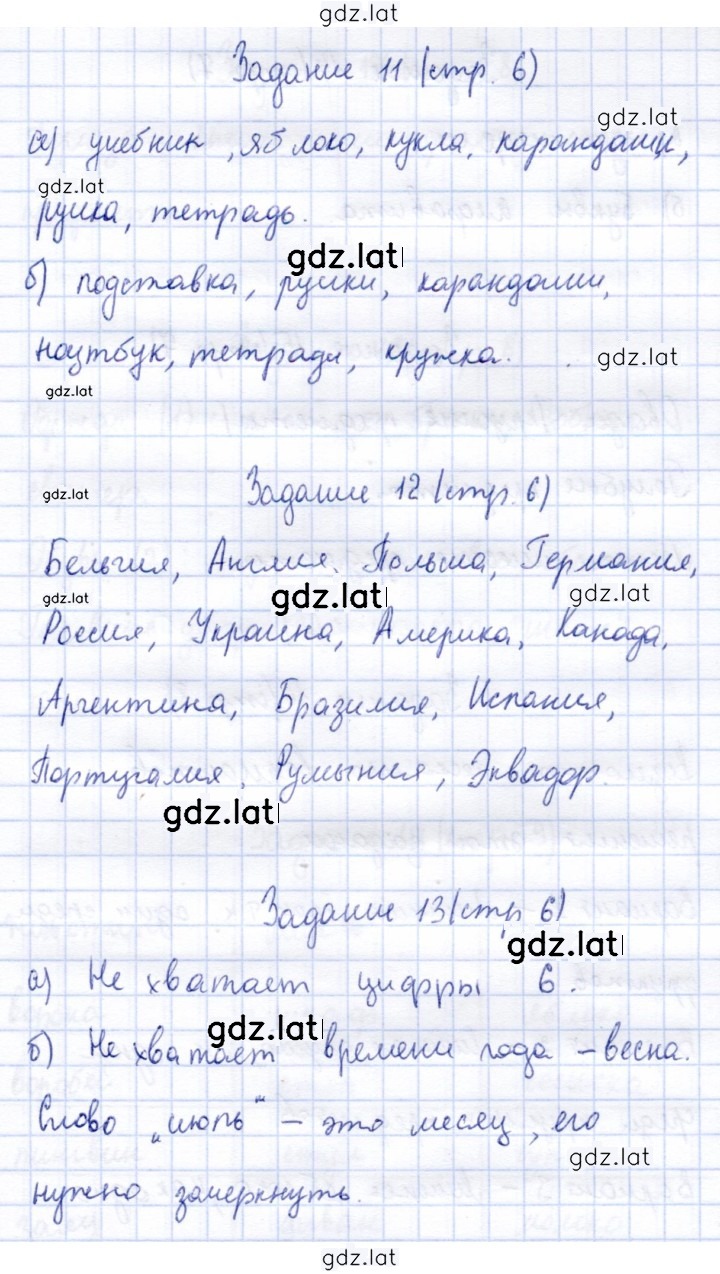 gdz.lat
Задание 11 (стр. 6)
gdz.lat
а) учебник, яблоко, кукла, карандаши,
gdz.lat
ручка, тетрадь.
gdz.lat
б) подставка, ручки, карандаши,
ноутбук, тетради, кружка.
gdz.lat
gdz.lat
gdz.lat
Задание 12 (стр. 6)
Бельгия, Англия, Польша, Германия,
gdz.lat
gdz.lat
gdz.lat
Россия, Украина, Америка, Канада,
Аргентина, Бразилия, Испания,
Португалия, Румыния, Эквадор.
gdz.lat
Задание 13 (стр 6)
gdz.lat
а) Не хватает цифры 6.
gdz.lat
б) Не хватает времени года – весна.
Слово „июль“ – это месяц, его
gdz.lat
нужно зачеркнуть.
gdz.lat